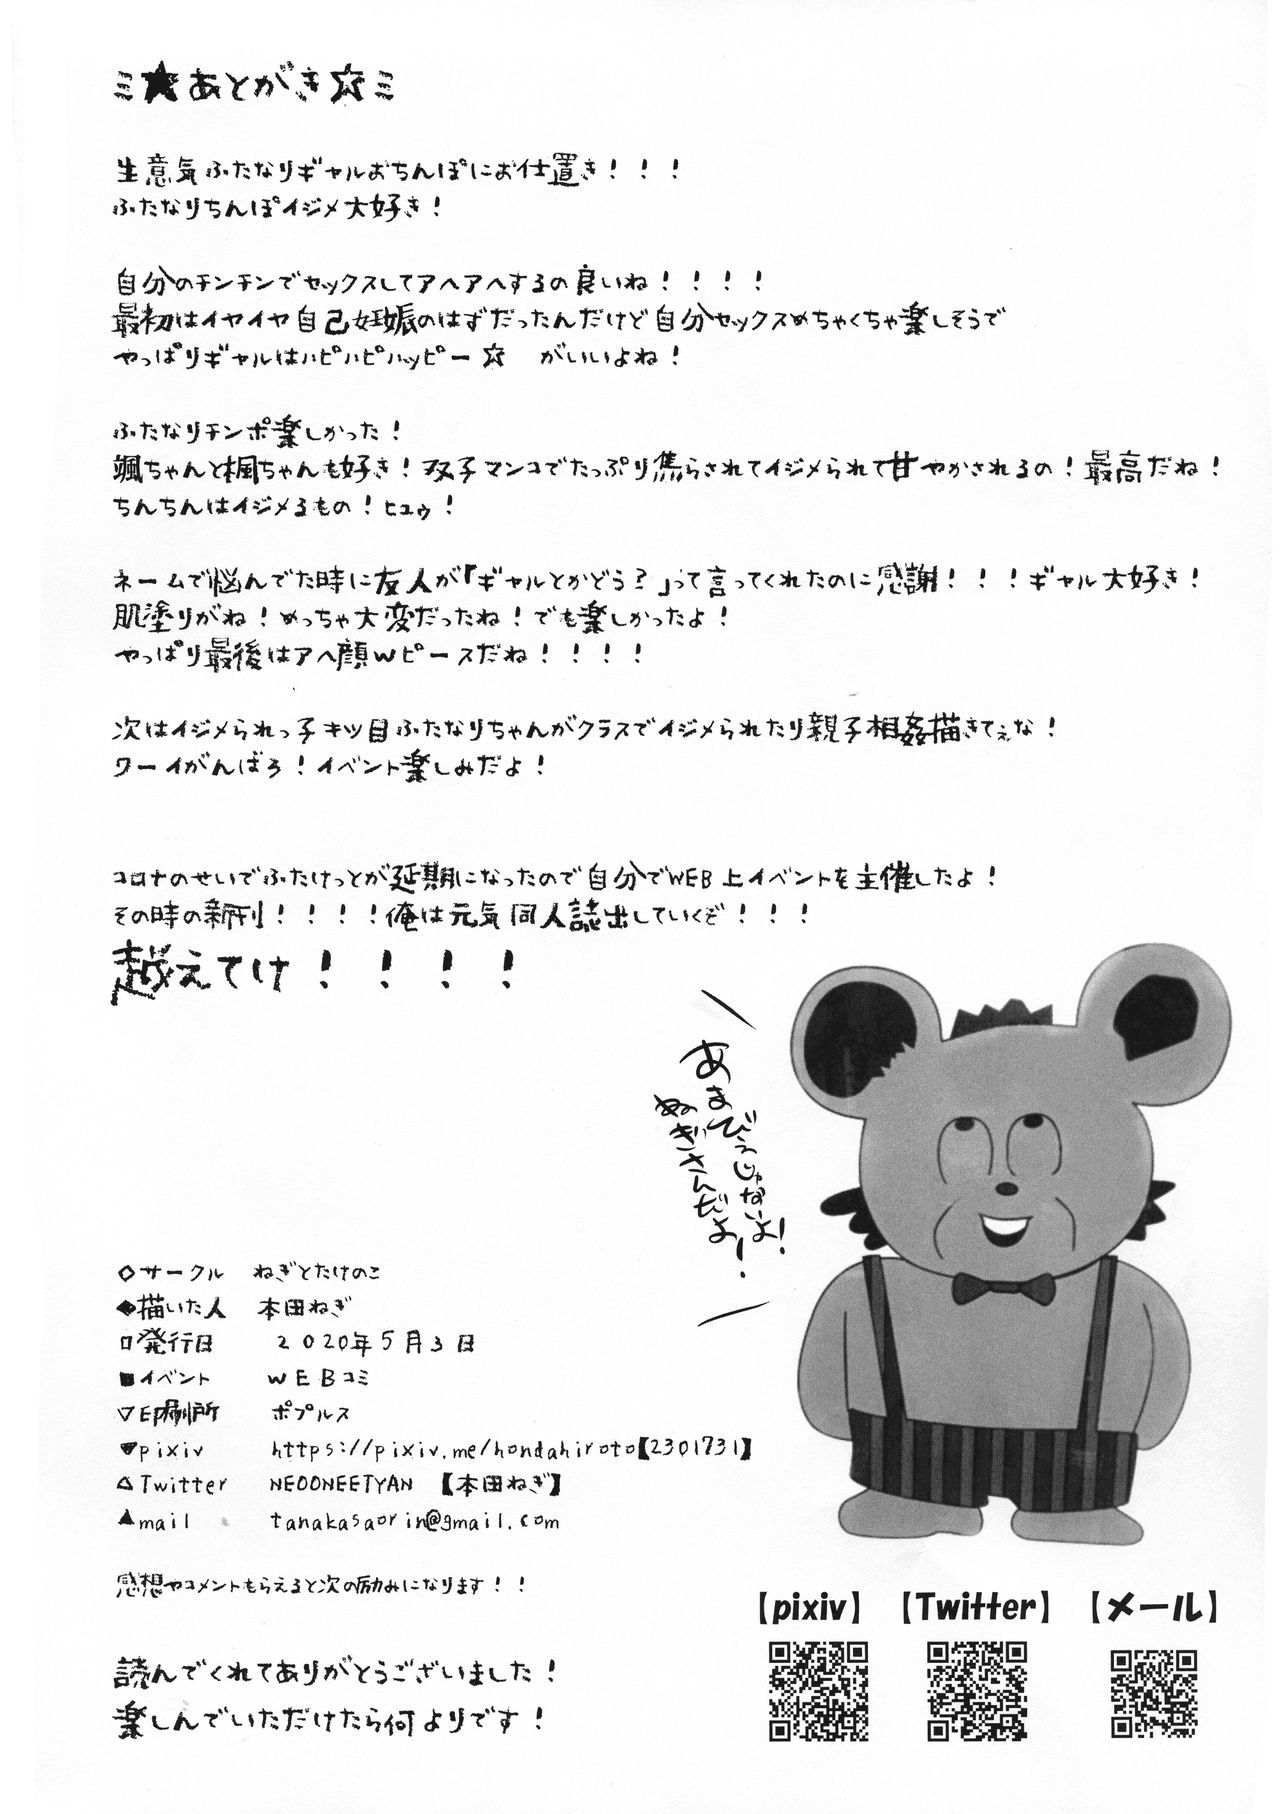 ミ★あとがき☆ミ
生意気ふたなりギャルおちんぽにお仕置き！！！
ふたなりちんぽイジメ大好き！
自分のチンチンでセックスしてアヘアヘするの良いね！！！！
最初はイヤイヤ自己妊娠のはずだったんだけど自分セックスめちゃくちゃ楽しそうで
やっぱりギャルはハピハピハッピー☆　がいいよね！
ふたなりチンポ楽しかった！
颯ちゃんと楓ちゃんも好き！双子マンコでたっぷり焦らされてイジメられて甘やかされるの！最高だね！
ちんちんはイジメるもの！ヒュゥ！
ネームで悩んでた時に友人が「ギャルとかどう？」って言ってくれたのに感謝！！！ギャル大好き！
肌塗りがね！めっちゃ大変だったね！でも楽しかったよ！
やっぱり最後はアヘ顔Wピースだね！！！！
次はイジメられっ子キツ目ふたなりちゃんがクラスでイジメられたり親子相姦描きてぇな！
ワーイがんばろ！イベント楽しみだよ！
コロナのせいでふたけっとが延期になったので自分でWEB上イベントを主催したよ！
その時の新刊！！！！俺は元気同人誌出していくぞ！！！
越えてけ！！！！
あまびえじゃないよ！
ねぎさんだよー！
◇サークル　ねぎとたけのこ
◆描いた人　本田ねぎ
□発行日　２０２０年５月３日
■イベント　WEBコミ
▽印刷所　ポプルス
▼pixiv　https://pixiv.me/hondahiroto【2301731】
△Twitter　NEOONEETYAN　【本田ねぎ】
▲mail　tanakasaorin@gmail.com
感想やコメントもらえると次の励みになります！！
【pixiv】【Twitter】【メール】
読んでくれてありがとうございました！
楽しんでいただけたら何よりです！